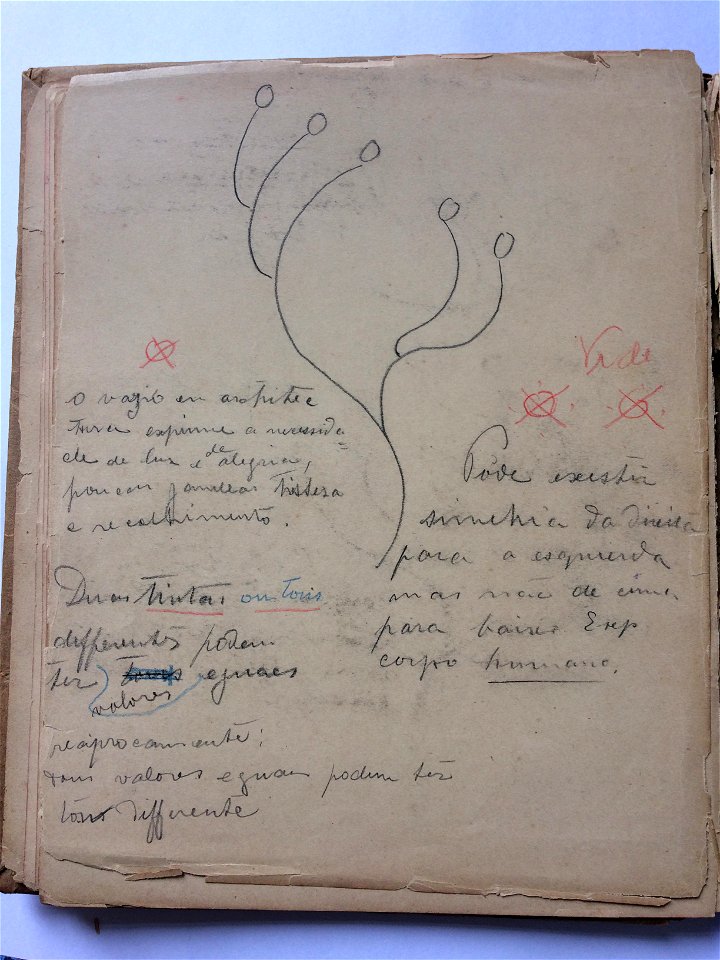 O vazio em architec
tura exprime a necessida
de de luz e de alegria,
poucas janellas tristeza
e recolhimento.
Duas tintas ou tons
differentes podem
ter tons eguaes
valores
reciprocamente:
dous valores eguaes podem ter
tons differente
Vide
Pode existir
simetria da direita
para a esquerda
mas não de cima
para baixo. Exep
corpo humano.